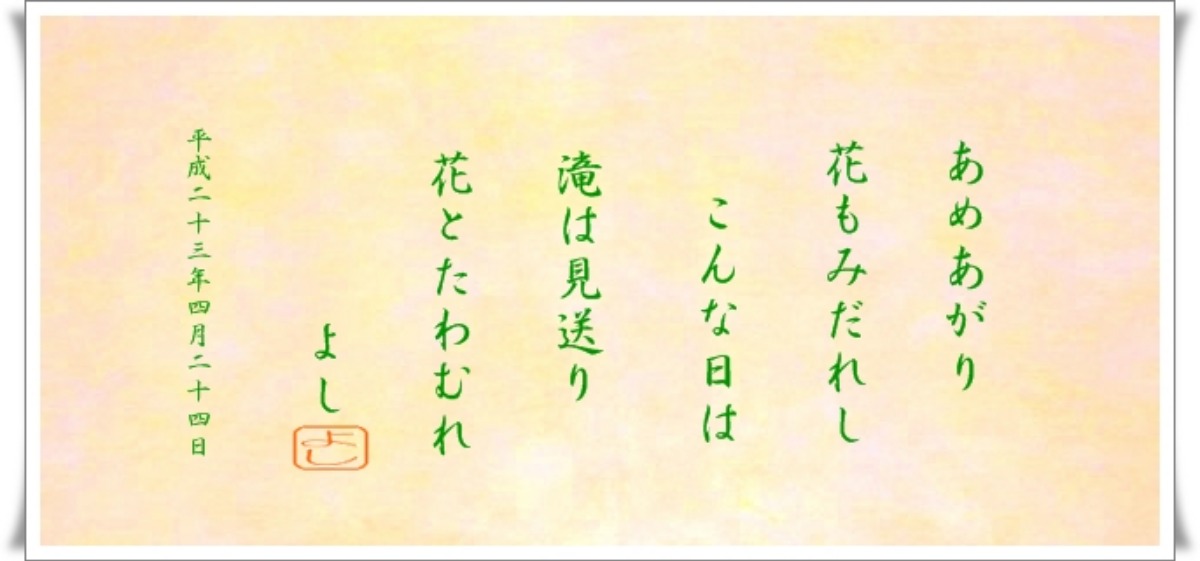 あめあがり
花もみだれし
こんな日は
滝は見送り
花とたわむれ
よし
よし
平成二十三年四月二十四日